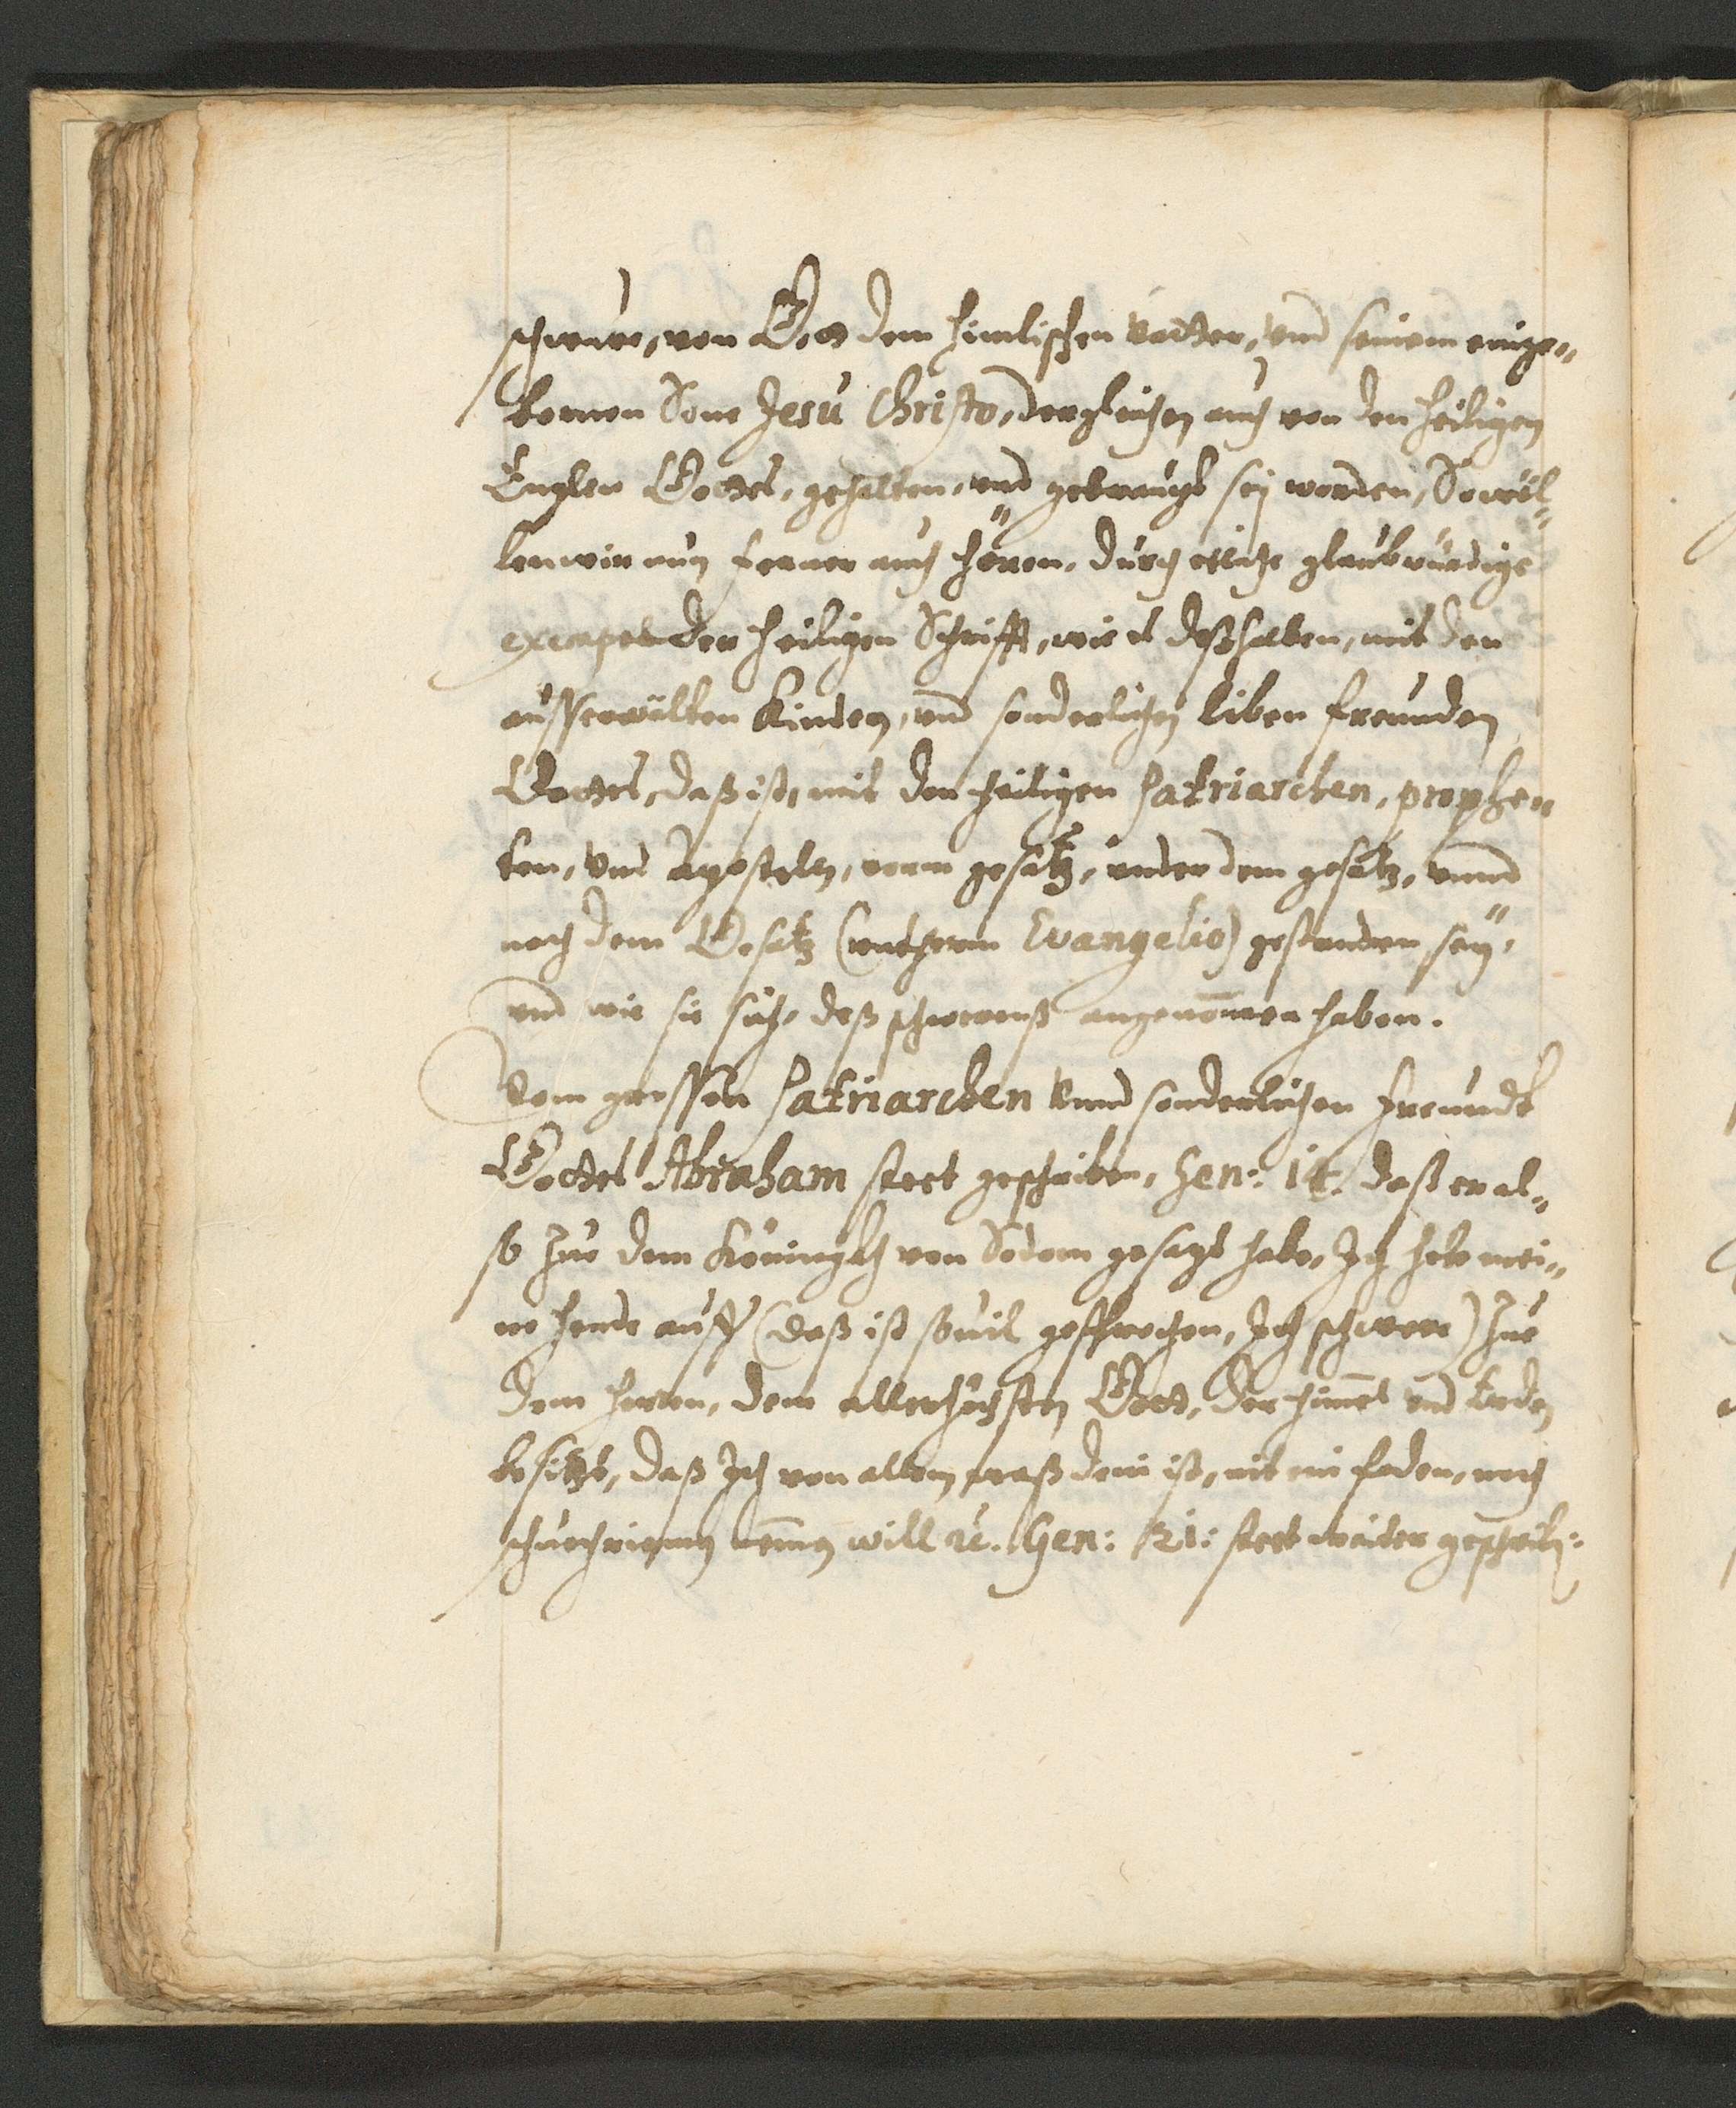 schwure, von Gott dem himlischen vatter, und seinem einge„
bornen Sone Jesu Christo, dergleichen auch von den heiligen
Englen Gottes, gehalten, und gebraucht sey worden, So wöl„
len wir nun ferner auch hören, durch etliche glaubwürdige
exempel der heiligen Schrifft, wie es deßhalben, mit den
ausserwälten Kinden, und sonderlichen liben freunden
Gottes, daß ist, mit den heiligen Patriarchen, prophe„
ten, und Apostelen, vorm gesatz, under dem gesatz, unnd
nach dem Gesatz (unther m Evangelio) gestanden seÿ,
und wie sie sich, deß schwerenß angenomen haben.
Vom grossen Patriarchen Unnd sonderlichen freundt
Gottes Abraham steet geschriben, Gen: 14. daß er al„
so zue dem Köningkh von Sodom gesagt habe, Ich hebe mei„
ne hende auff (daß ist sovil gesprochen, Ich schwere) zue
dem herren, dem allerhöchsten Gott, der himel und Erden
besitzt, daß Ich von allem, waß dein ist, nit ein faden, noch
schuechriemen nemen will etc. Gen: 21: steet weiter geschriben: